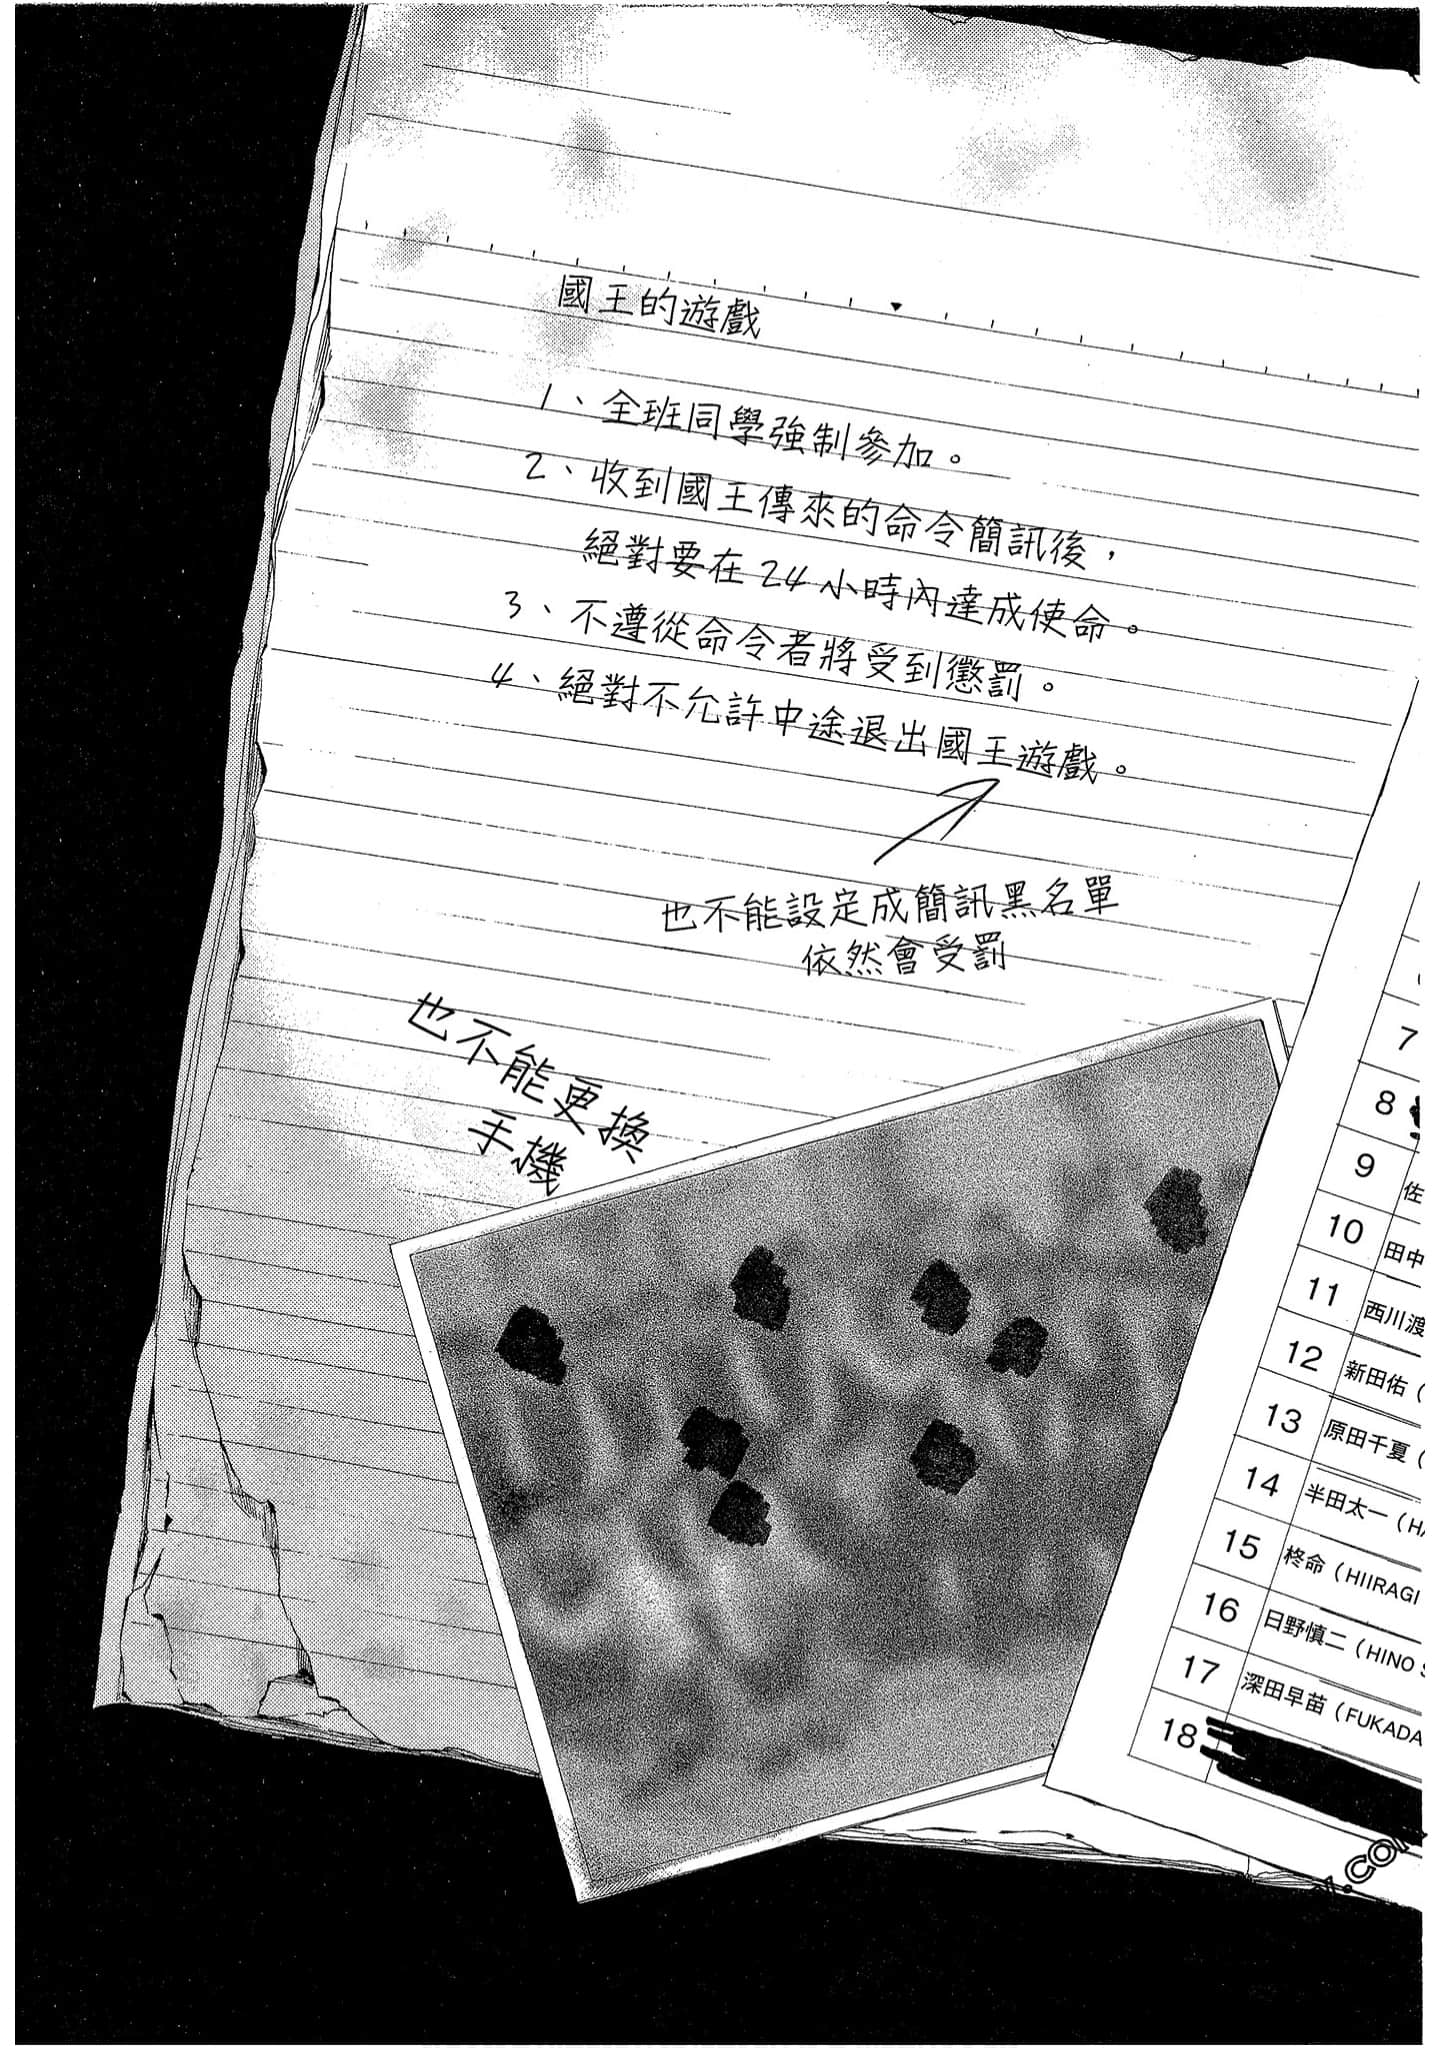 國王的遊戲
1、全班同學強制參加。
2、收到國王傳來的命令簡訊後，
絕對要在24小時內達成使命。
3、不遵從命令者將受到懲罰。
4、絕對不允許中途退出國王遊戲。
也不能設定成簡訊黑名單
依然會受罰
也不能更換
手機
7
8
9 佐
10 田中
11 西川渡
12 新田佑（
13 原田千夏（
14 半田太一（HA
15 柊命（HIIRAGI
16 日野慎二（HINO S
17 深田早苗（FUKADA
18
.com